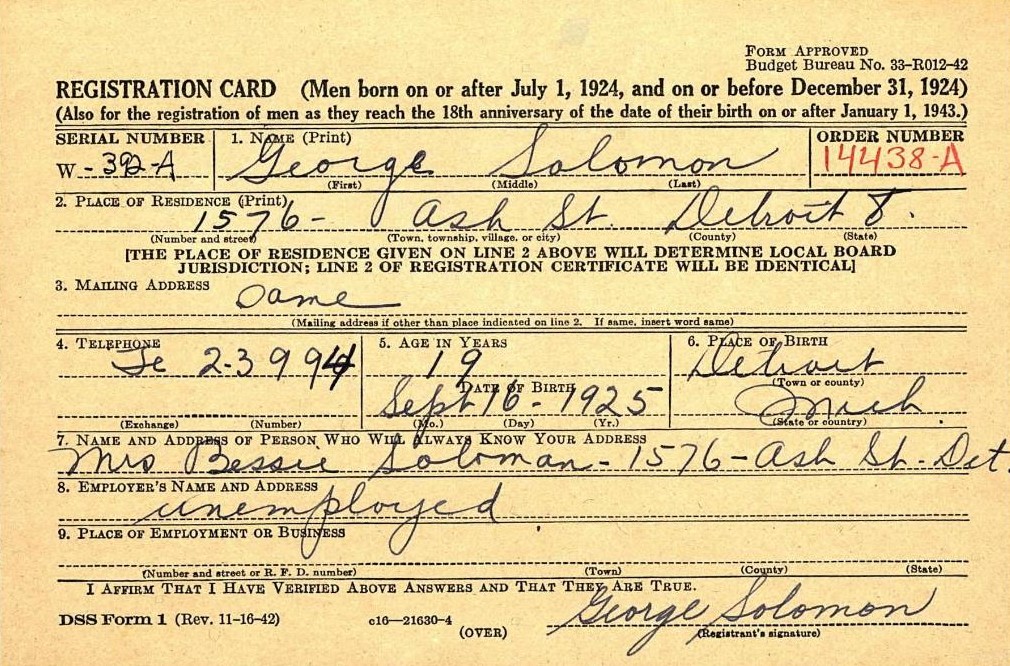 FORM APPROVED
Budget Bureau No. 33-R012-42
REGISTRATION CARD (Men born on or after July 1, 1924, and on or before December 31, 1924)
(Also for the registration of men as they reach the 18th anniversary of the date of their birth on or after January 1, 1943.)
SERIAL NUMBER 1. NAME (Print) ORDER NUMBER
W - 392-A George Solomon 14438-A
(First) (Middle) (Last)
2. PLACE OF RESIDENCE (Print)
1576- Ash St. Detroit 8.
(Number and street) (Town, township, village, or city) (County) (State)
[THE PLACE OF RESIDENCE GIVEN ON LINE 2 ABOVE WILL DETERMINE LOCAL BOARD
JURISDICTION; LINE 2 OF REGISTRATION CERTIFICATE WILL BE IDENTICAL]
3. MAILING ADDRESS
Same
(Mailing address if other than place indicated on line 2. If same, insert word same)
4. TELEPHONE 5. AGE IN YEARS 6. PLACE OF BIRTH
Te 2-3994 19 Detroit
DATE OF BIRTH (Town or county)
Sept 16-1925 Mich
(Exchange) (Number) (Mo.) (Day) (Yr.) (State or country)
7. NAME AND ADDRESS OF PERSON WHO WILL ALWAYS KNOW YOUR ADDRESS
Mrs Bessie Soloman - 1576 - Ash St. Det.
8. EMPLOYER'S NAME AND ADDRESS
unemployed
9. PLACE OF EMPLOYMENT OR BUSINESS
(Number and street or R. F. D. number) (Town) (County) (State)
I AFFIRM THAT I HAVE VERIFIED ABOVE ANSWERS AND THAT THEY ARE TRUE.
George Solomon
DSS Form 1 (Rev. 11-16-42) c16—21630-4 (OVER) (Registrant's signature)